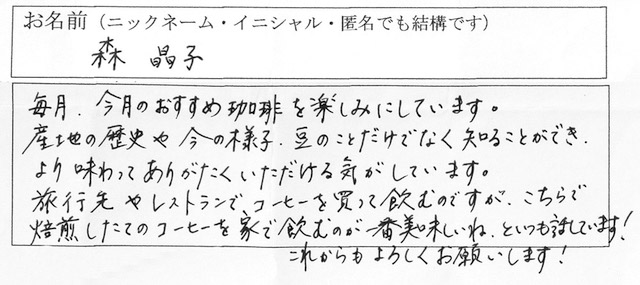 お名前（ニックネーム・イニシャル・匿名でも結構です）
森 晶子
毎月、今月のおすすめ珈琲を楽しみにしています。
産地の歴史や今の様子、豆のことだけでなく知ることができ、
より味わってありがたくいただける気がしています。
旅行先やレストランで、コーヒーを買って飲むのですが、こちらで
焙煎したてのコーヒーを家で飲むのが一番美味しいね、といつも話しています！
これからもよろしくお願いします！